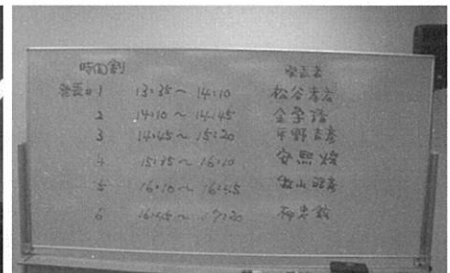 時間割 発表者
発表#1 13:35～14:10 松谷
2 14:10～14:45 金
3 14:45～15:20 平野
4 15:35～16:10 安熙
5 16:10～16:45 山
6 16:45～17:20 柳忠